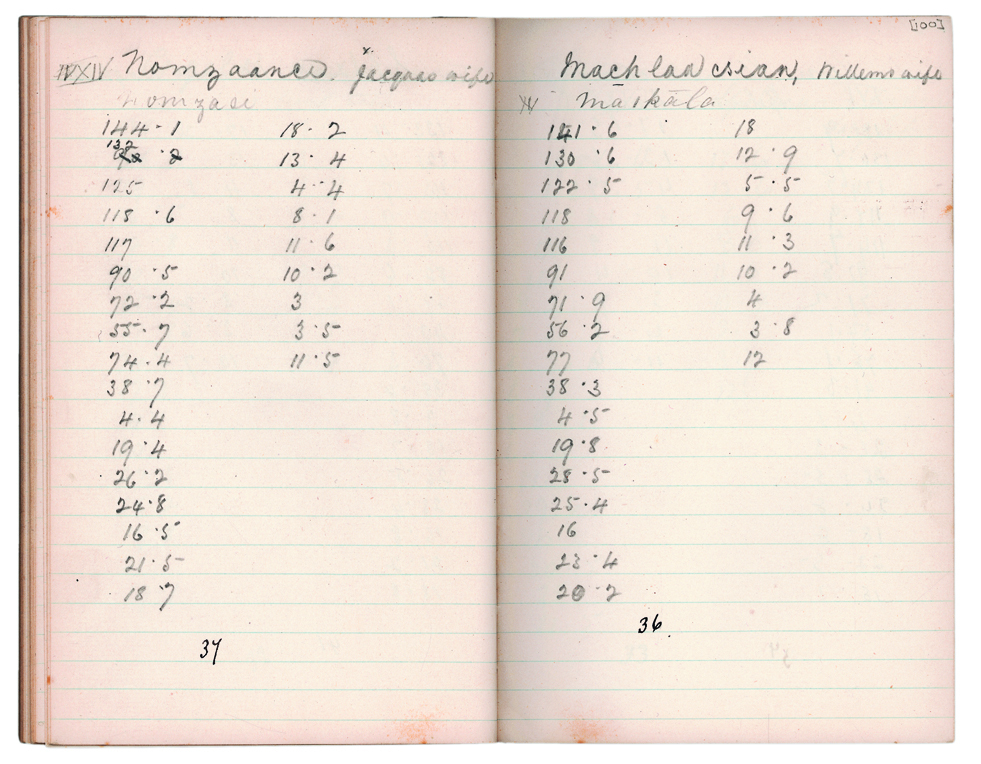 XIV Nomzaance. Jacquas wife
Nomzasi
144·1 18·2
132 ·2 13·4
125 4·4
118 ·6 8·1
117 11·6
90 ·5 10·2
72·2 3
55·7 3·5
74·4 11·5
38·7
4·4
19·4
26·2
24·8
16·5
21·5
18·7
37
[100]
Willems wife
XV māskāla
141·6 18
130·6 12·9
122·5 5·5
118 9·6
116 11·3
91 10·2
71·9 4
56·2 3·8
77 12
38·3
4·5
19·8
28·5
25·4
16
23·4
20·2
36